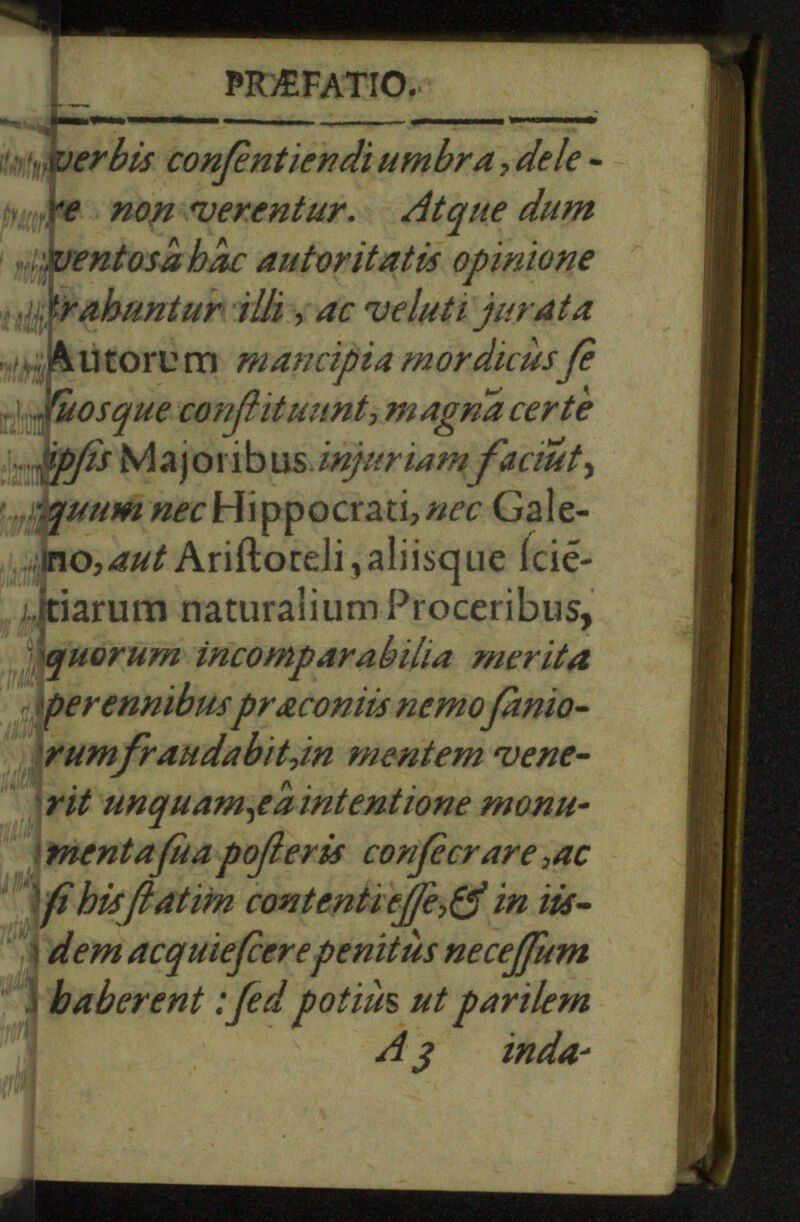 PRÆFATIO.
verbis conſentiendi umbra, dele-
re non verentur. Atque dum
ventosâ hâc autoritatis opinione
trahuntur illi, ac veluti jurata
Autorum mancipia mordicùs ſe
ſuosque conſtituunt, magnâ certè
ipſis Majoribus injuriam faciūt,
quum nec Hippocrati, nec Gale-
no, aut Ariſtoteli, aliisque ſciē-
tiarum naturalium Proceribus,
quorum incomparabilia merita
perennibus præconiis nemo ſanio-
rum fraudabit, in mentem vene-
rit unquam, eâ intentione monu-
menta ſua poſteris conſecrare, ac
ſi his ſtatim contenti eſſe, & in iis-
dem acquieſcere penitùs neceſſum
haberent: ſed potiùs ut parilem
A 3 inda-